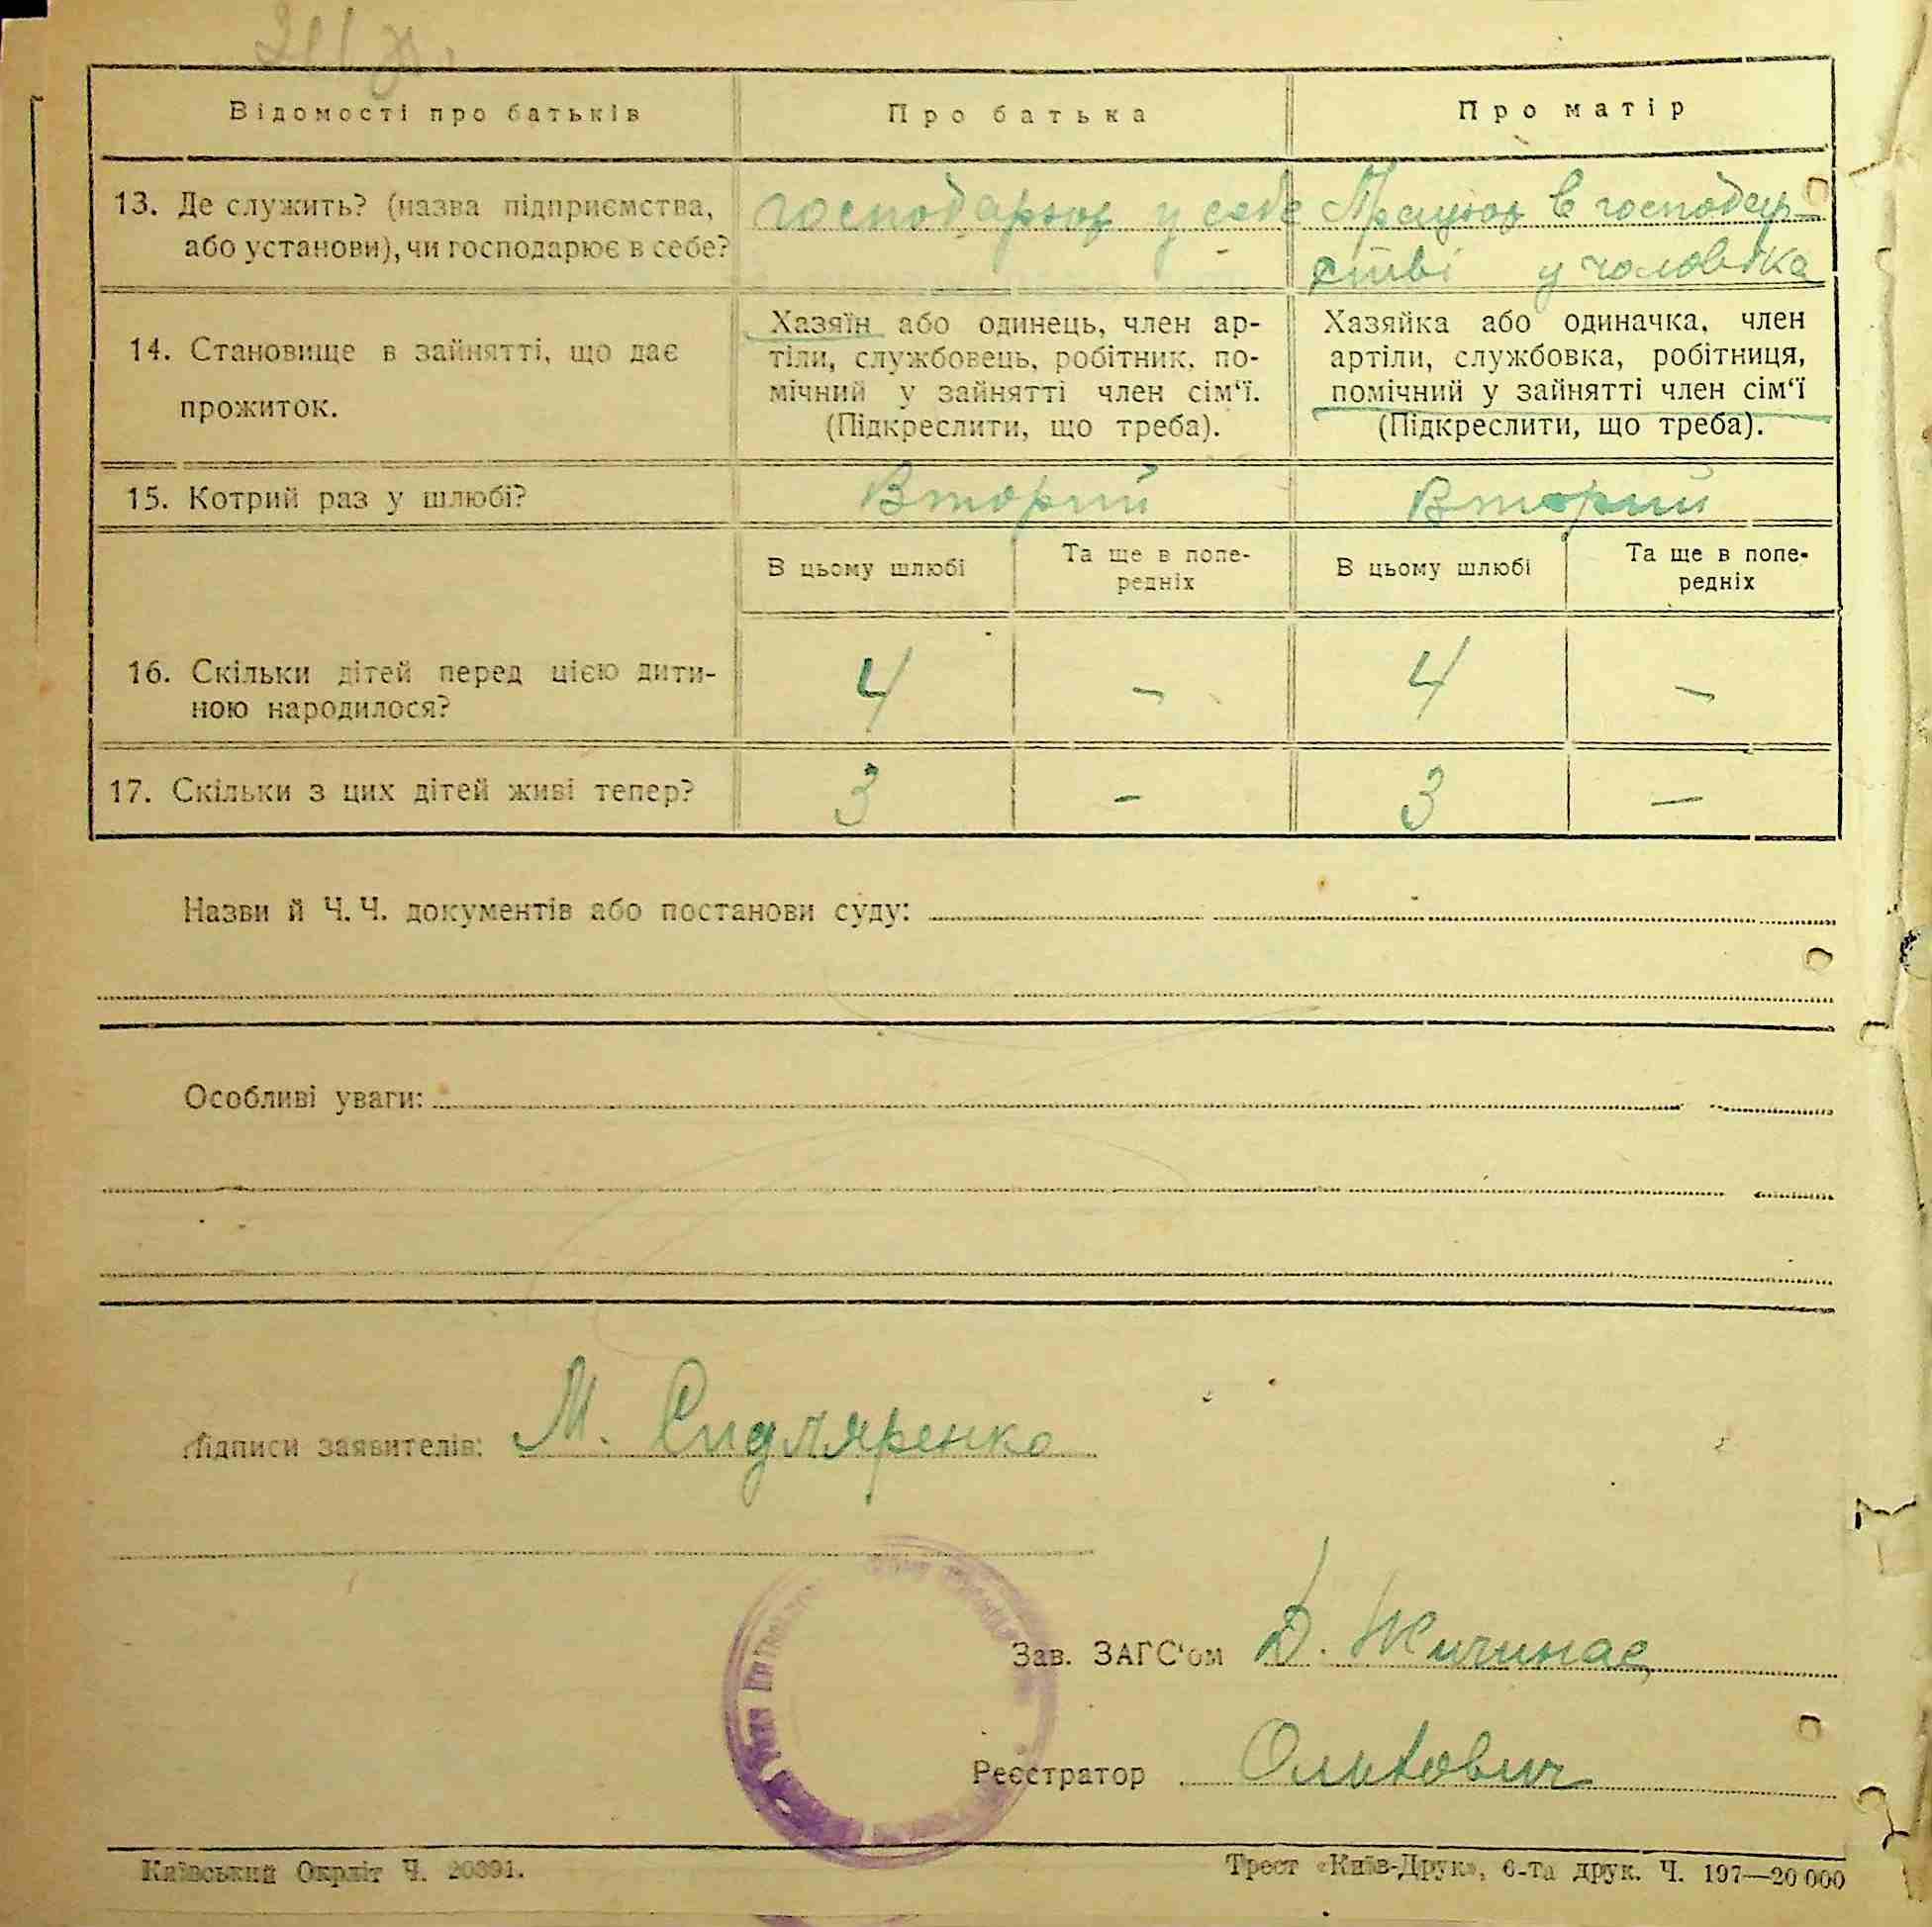 Відомості про батьків
Про батька
Про матір
13. Де служить? (назва підприємства,
або установи), чи господарює в себе?
господарює у себе
Працює в господар-
стві у чоловіка
14. Становище в зайнятті, що дає
прожиток.
Хазяїн або одинець, член ар-
тіли, службовець, робітник, по-
мічний у зайнятті член сім‘ї.
(Підкреслити, що треба).
Хазяйка або одиначка, член
артіли, службовка, робітниця,
помічний у зайнятті член сім‘ї
(Підкреслити, що треба).
15. Котрий раз у шлюбі?
Вторий
Вторий
В цьому шлюбі
Та ще в попе-
редніх
В цьому шлюбі
Та ще в попе-
редніх
16. Скільки дітей перед цією дити-
ною народилося?
4
-
4
-
17. Скільки з цих дітей живі тепер?
3
-
3
-
Назви й Ч. Ч. документів або постанови суду:
Особливі уваги:
Підписи заявителів: М.
Зав. ЗАГС‘ом Д.
Реєстратор
Київський Окрліт Ч. 20391.
Трест «Київ-Друк», 6-та друк. Ч. 197—20 000